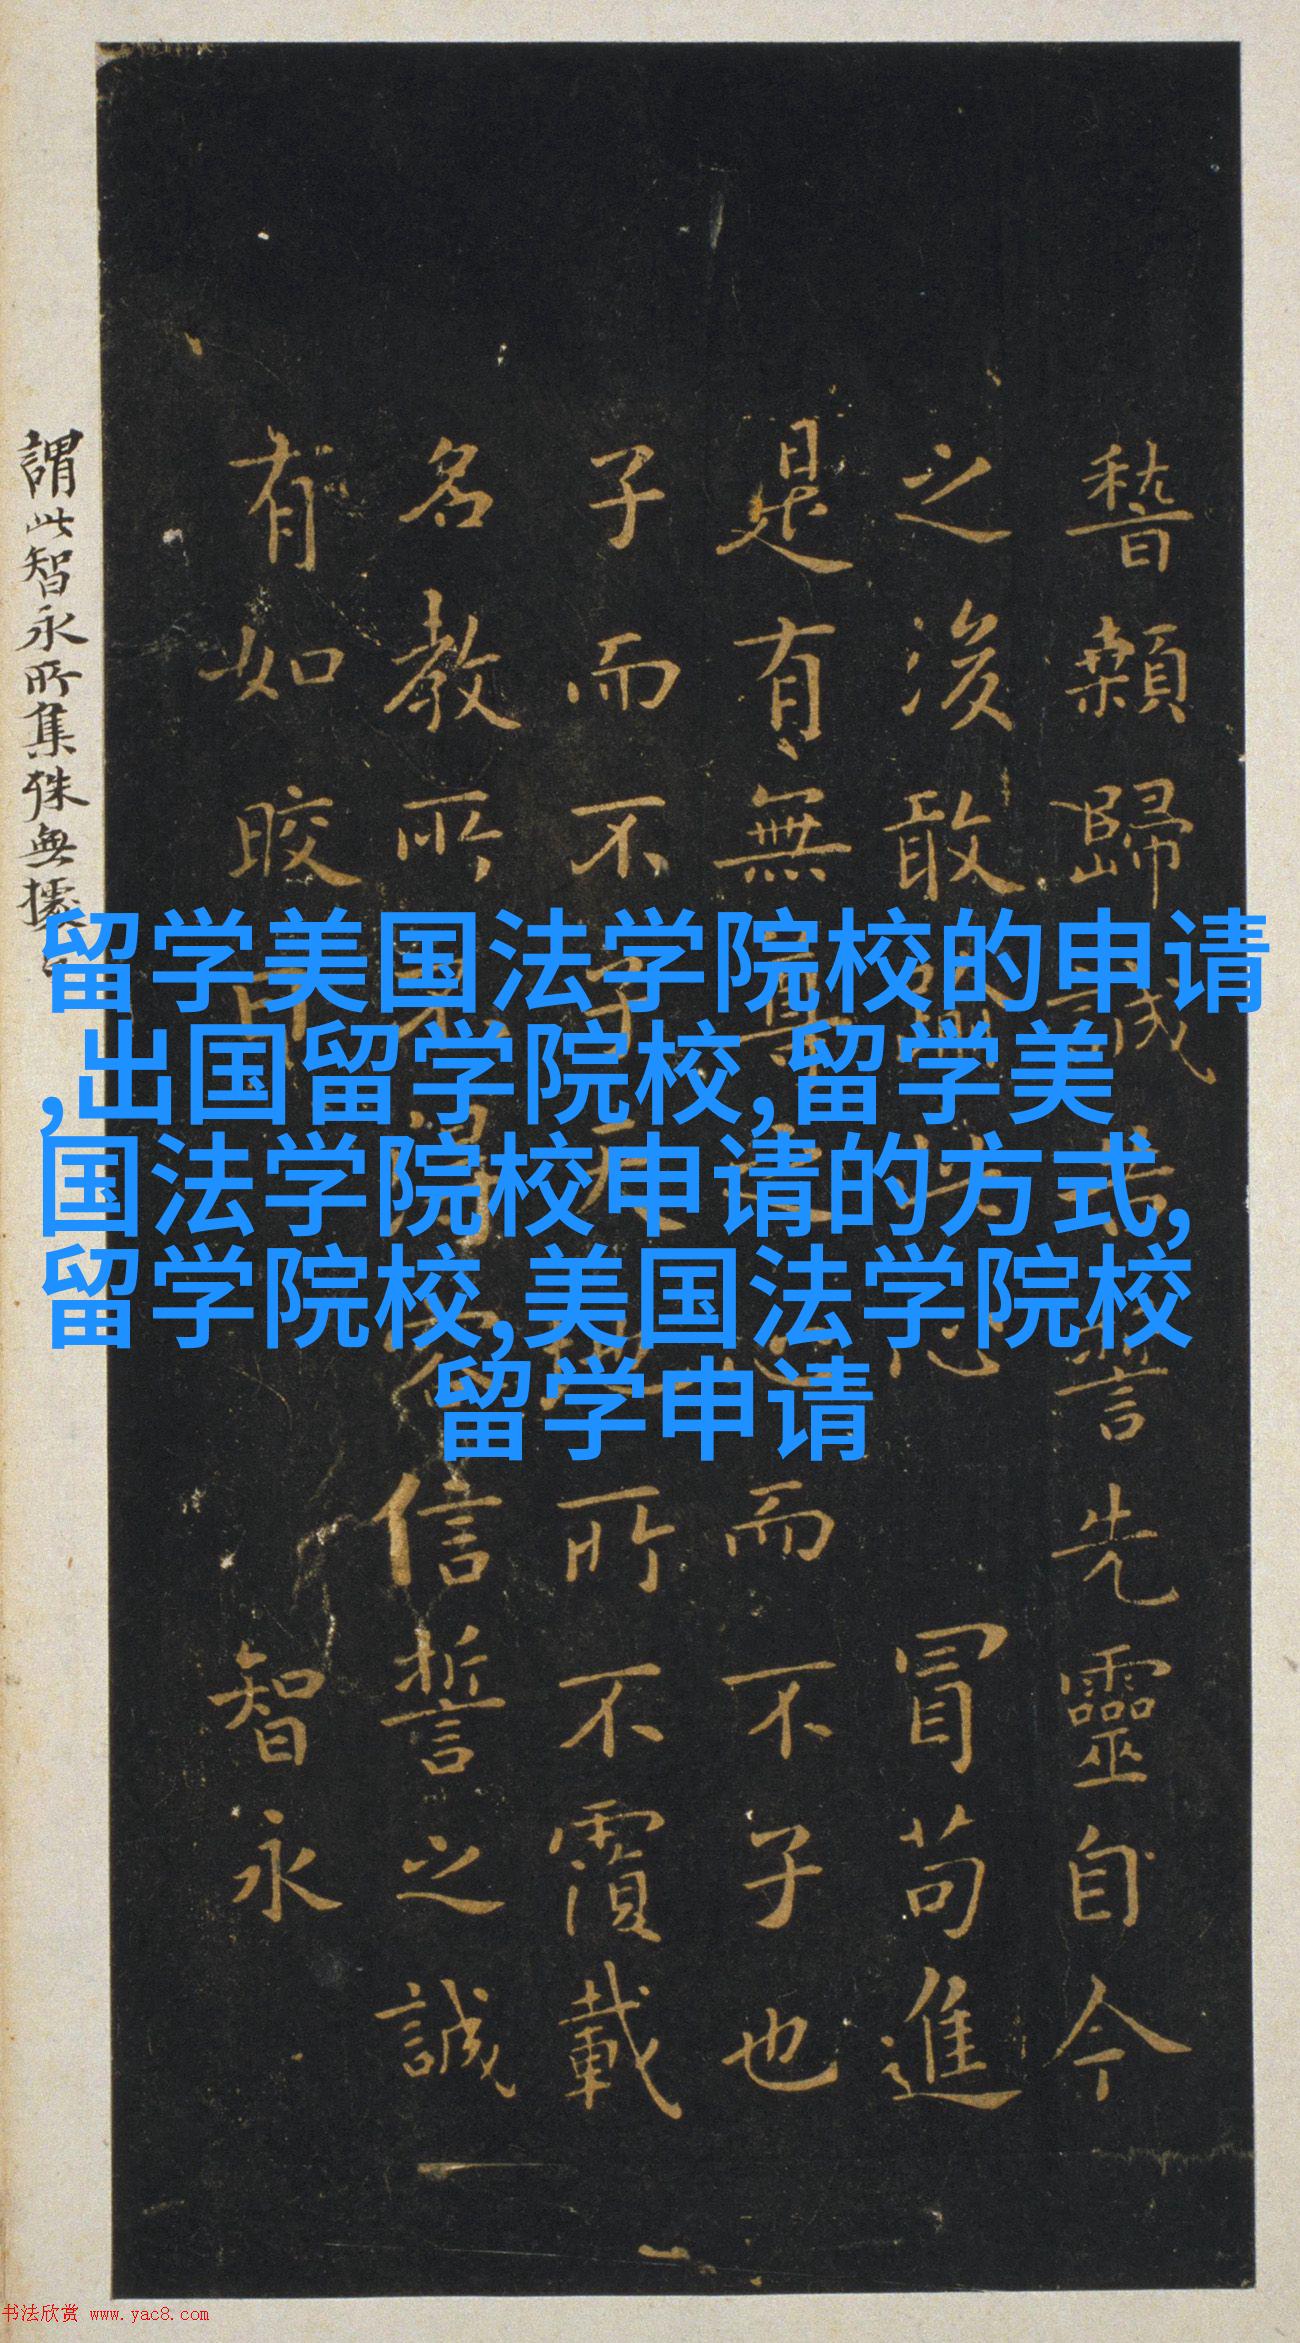 稽顙歸誠告誓先靈自今
之後敢渝此心冒苟進
是有無尊之心而不子也
子而不子天地所不覆載
名教所不得容信誓之誠
有如皎日 智永
謂此智永所集殊無據
留学美国法学院校的申请
,出国留学院校,留学美
国法学院校申请的方式,
留学院校,美国法学院校
留学申请
书法欣赏 www.yac8.com